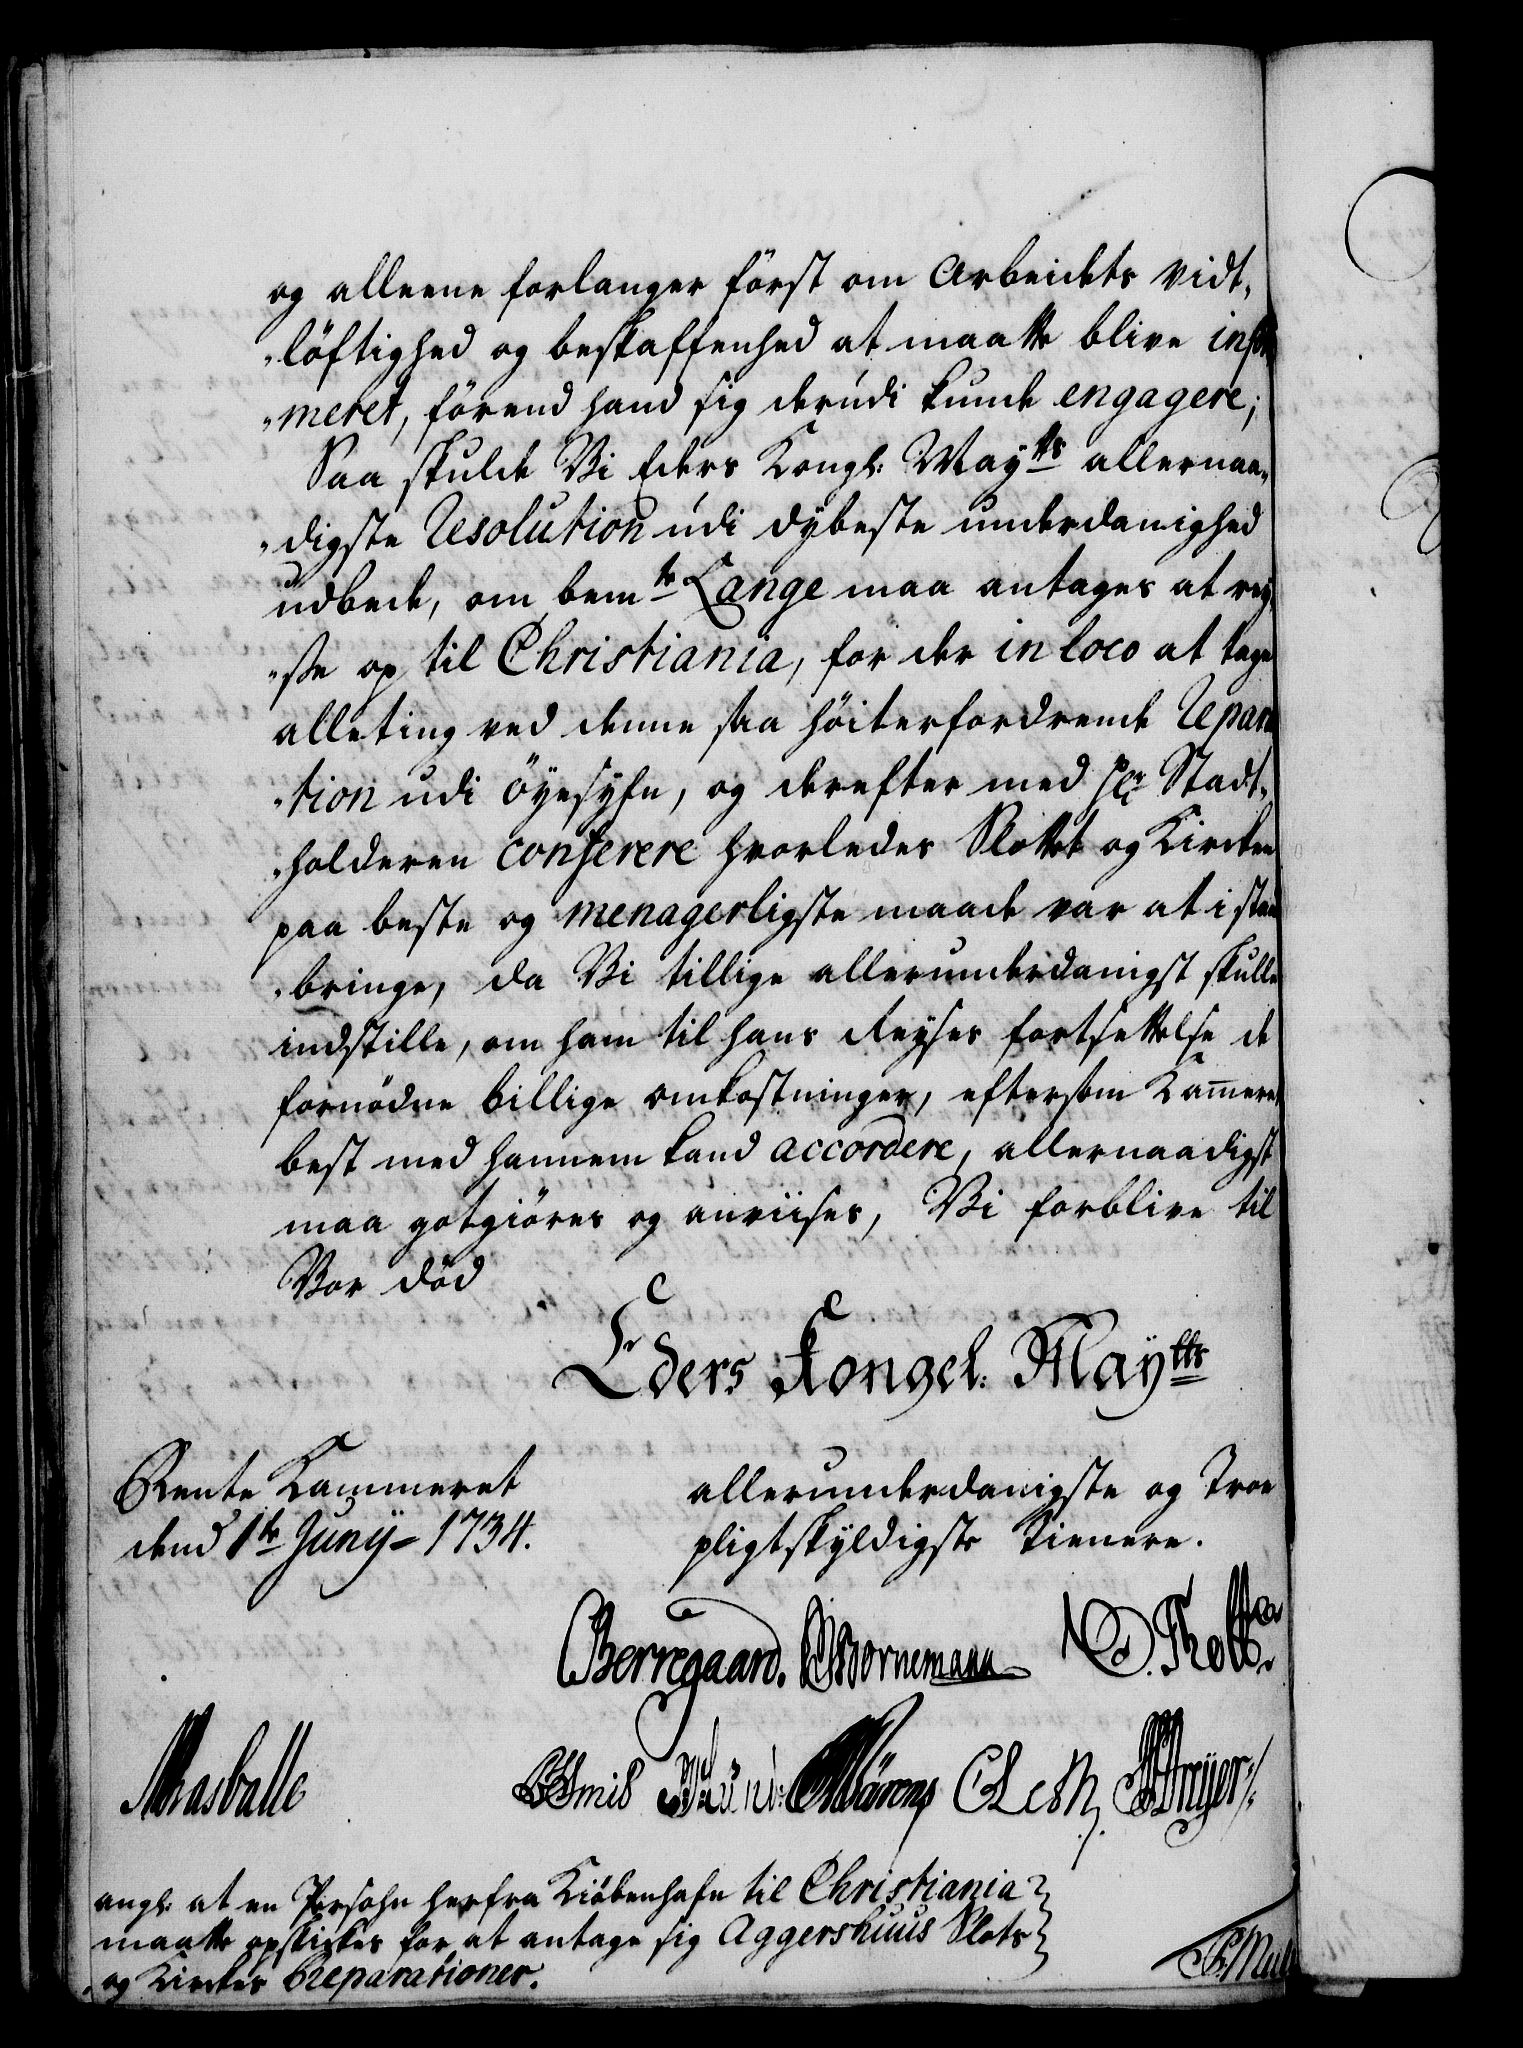 og alleene forlanger först om Arbeidets vidt„
„löftighed og beskaffenhed at maatte blive infor
„meret, förend hand sig derudi kunde engagere;
Saa skulde Vi Eders Kongl: Mayts allernaa„
„digste Resolution udi dybeste underdanighed
udbede, om bemte Lange maa antages at rey„
„se op til Christiania, for der in loco at tage
alleting ved denne saa höiterfordrende Repara
„tion udi öyesyfn, og derefter med Hr Stadt„
„holderen conferere hvorledes Slottet og Kircken
paa beste og menagerligste maade var at i stand
„bringe, da Vi tillige allerunderdanigst skulle
indstille, om ham til hans Reyses fortsettelse de
fornödne billige omkostninger, eftersom Kammeret
best med hannem kand accordere, allernaadigst
maa gotgiöres og anviises, Vi forblive til
Vor död
Eders Kongel: Mayts
Rente Kammeret
dend 1te Junij 1734.
allerunderdanigste og Troe
pligtskyldigste Tienere.
Berregaard. Bornemann O. Thott
Mrasballe Smit Wärens CLeth Dreyer
angl: at en Persohn herfra Kiöbenhafn til Christiania
maatte opskikkes for at antage sig Aggershuus Slots
og Kirckes Reparationer.